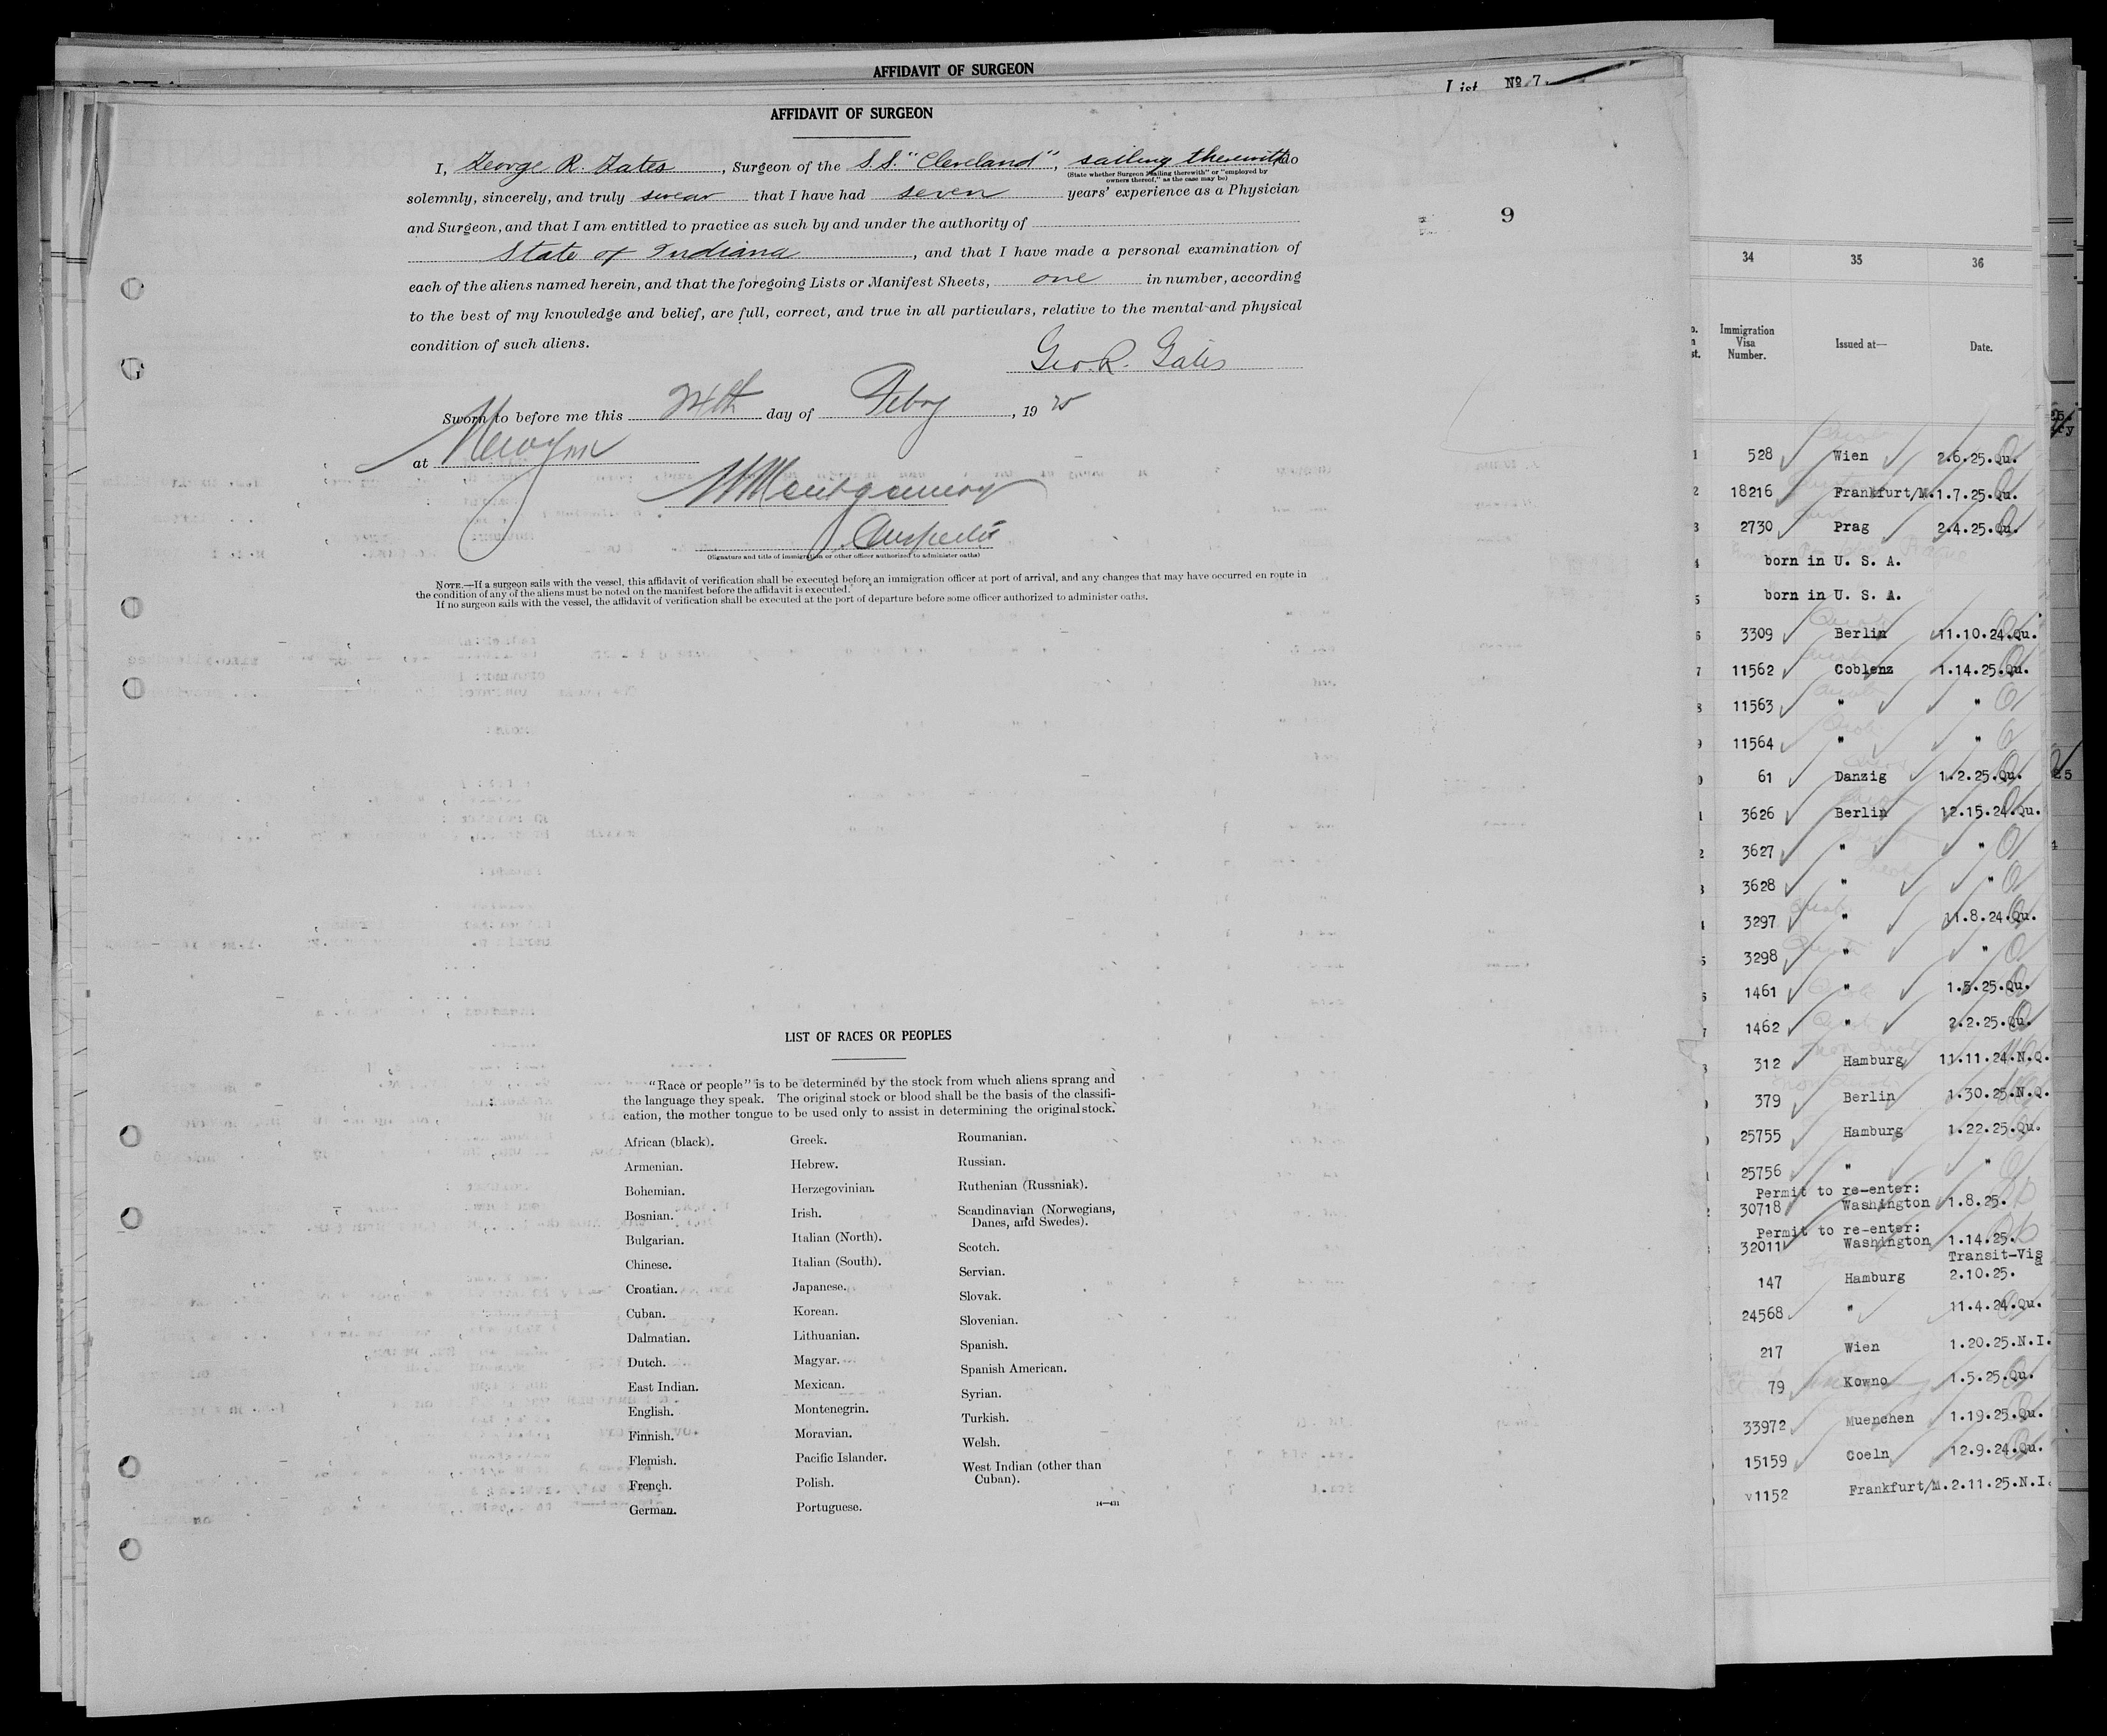 AFFIDAVIT OF SURGEON
List No 7
AFFIDAVIT OF SURGEON
I, George R. Gates, Surgeon of the S.S. "Cleveland", sailing therewith, do
(State whether Surgeon "sailing therewith" or "employed by
owners thereof," as the case may be)
solemnly, sincerely, and truly swear that I have had seven years' experience as a Physician
and Surgeon, and that I am entitled to practice as such by and under the authority of
State of Indiana, and that I have made a personal examination of
each of the aliens named herein, and that the foregoing Lists or Manifest Sheets, one in number, according
to the best of my knowledge and belief, are full, correct, and true in all particulars, relative to the mental and physical
condition of such aliens.
Geo. R. Gates
Sworn to before me this 24th day of Feby, 1925
at New York
Montgomery
Inspector
(Signature and title of immigration or other officer authorized to administer oaths)
NOTE.—If a surgeon sails with the vessel, this affidavit of verification shall be executed before an immigration officer at port of arrival, and any changes that may have occurred en route in
the condition of any of the aliens must be noted on the manifest before the affidavit is executed.
If no surgeon sails with the vessel, the affidavit of verification shall be executed at the port of departure before some officer authorized to administer oaths.
9
LIST OF RACES OR PEOPLES
"Race or people" is to be determined by the stock from which aliens sprang and
the language they speak. The original stock or blood shall be the basis of the classifi-
cation, the mother tongue to be used only to assist in determining the original stock.
African (black).
Armenian.
Bohemian.
Bosnian.
Bulgarian.
Chinese.
Croatian.
Cuban.
Dalmatian.
Dutch.
East Indian.
English.
Finnish.
Flemish.
French.
German.
Greek.
Hebrew.
Herzegovinian.
Irish.
Italian (North).
Italian (South).
Japanese.
Korean.
Lithuanian.
Magyar.
Mexican.
Montenegrin.
Moravian.
Pacific Islander.
Polish.
Portuguese.
Roumanian.
Russian.
Ruthenian (Russniak).
Scandinavian (Norwegians,
Danes, and Swedes).
Scotch.
Servian.
Slovak.
Slovenian.
Spanish.
Spanish American.
Syrian.
Turkish.
Welsh.
West Indian (other than
Cuban).
14—431
34 35 36
Immigration
Visa
Number.
Issued at—
Date.
1 528 Wien 2.6.25.Qu.
2 18216 Frankfurt/M. 1.7.25.Qu.
3 2730 Prag 2.4.25.Qu.
4 born in U. S. A.
5 born in U. S. A.
6 3309 Berlin 11.10.24.Qu.
7 11562 Coblenz 1.14.25.Qu.
8 11563 " "
9 11564 " "
0 61 Danzig 1.2.25.Qu.
1 3626 Berlin 12.15.24.Qu.
2 3627 " "
3 3628 " "
4 3297 " 11.8.24.Qu.
5 3298 " "
6 1461 " 1.5.25.Qu.
7 1462 " 2.2.25.Qu.
312 Hamburg 11.11.24.N.Q.
379 Berlin 1.30.25.N.Q.
25755 Hamburg 1.22.25.Qu.
25756 " "
Permit to re-enter:
30718 Washington 1.8.25.
Permit to re-enter:
32011 Washington 1.14.25.
Transit-Visa
147 Hamburg 2.10.25.
24568 " 11.4.24.Qu.
217 Wien 1.20.25.N.I.
79 Kowno 1.5.25.Qu.
33972 Muenchen 1.19.25.Qu.
15159 Coeln 12.9.24.Qu.
v1152 Frankfurt/M. 2.11.25.N.I.